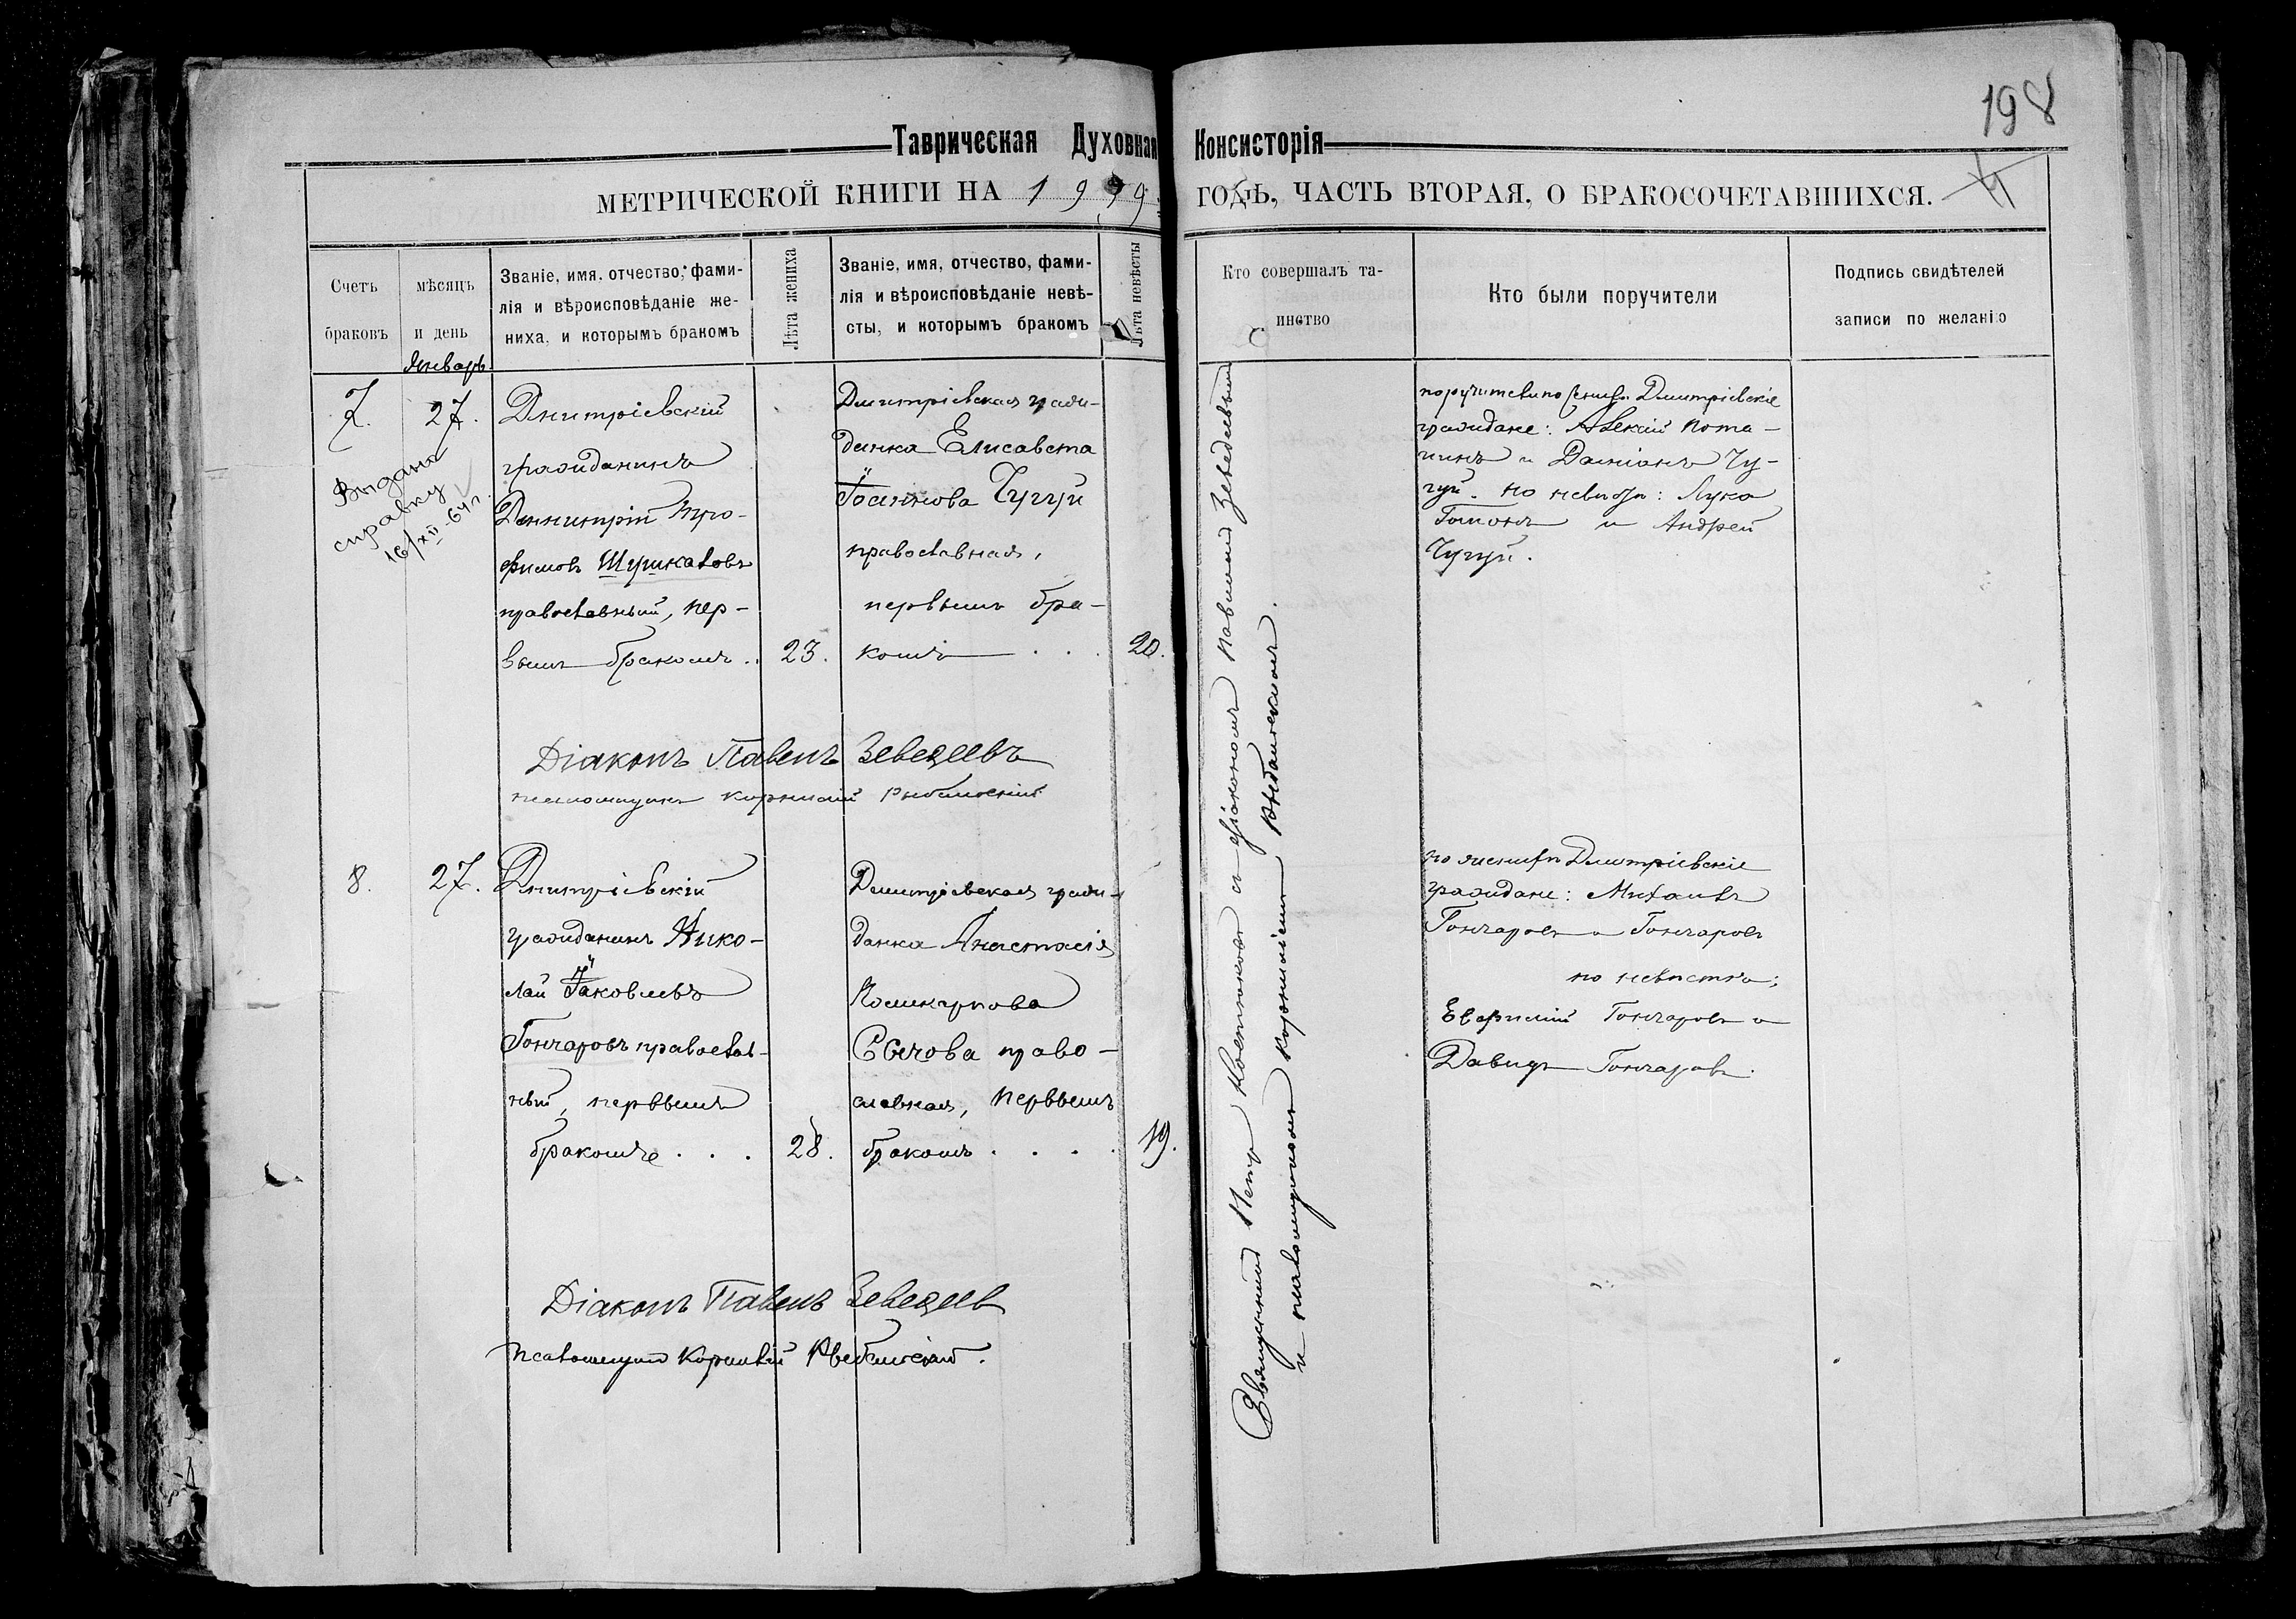 198
Таврическая Духовная Консисторія
МЕТРИЧЕСКОЙ КНИГИ НА 1919 ГОДЪ, ЧАСТЬ ВТОРАЯ, О БРАКОСОЧЕТАВШИХСЯ.
Счетъ
браковъ
мѣсяцъ
и день
Званіе, имя, отчество, фами-
лія и вѣроисповѣданіе же-
ниха, и которымъ бракомъ
Лѣта жениха
Званіе, имя, отчество, фами-
лія и вѣроисповѣданіе невѣ-
сты, и которымъ бракомъ
Лѣта невѣсты
Кто совершалъ та-
инство
Кто были поручители
Подпись свидѣтелей
записи по желанію
Январь
7.
27.
Выдана
справку
16/XII-64г.
Дмитріевскій
гражданинъ
Димитрій Тро-
фимовъ Шушкаловъ
православный, пер-
вымъ бракомъ . .
23.
Дмитріевская граж-
данка Елисавета
Іоаннова Чугуй
православная,
первымъ бра-
комъ . . .
20.
поручители по жениху Дмитріевскіе
граждане: Алексій Пота-
пинъ и Даміанъ Чу-
гуй. по невѣстѣ: Лука
и Андрей
Чугуй.
Діаконъ Павелъ Зеведеевъ
псаломщикъ Корнилій
8.
27.
Дмитріевскій
гражданинъ Нико-
лай Іаковлевъ
Гончаровъ православ-
ный, первымъ
бракомъ . . .
28.
Дмитріевская граж-
данка Анастасія
Поликарпова
Сычова право-
славная, первымъ
бракомъ . . . .
19.
по жениху Дмитріевскіе
граждане: Михаилъ
Гончаровъ и Гончаровъ
по невѣстѣ:
Евфимій Гончаровъ и
Давидъ Гончаровъ.
Діаконъ Павелъ Зеведеев
Псаломщикъ Корнилій
Священникъ Петръ Костюковъ съ діакономъ Павломъ Зеведеевымъ
и псаломщикомъ Корниліемъ